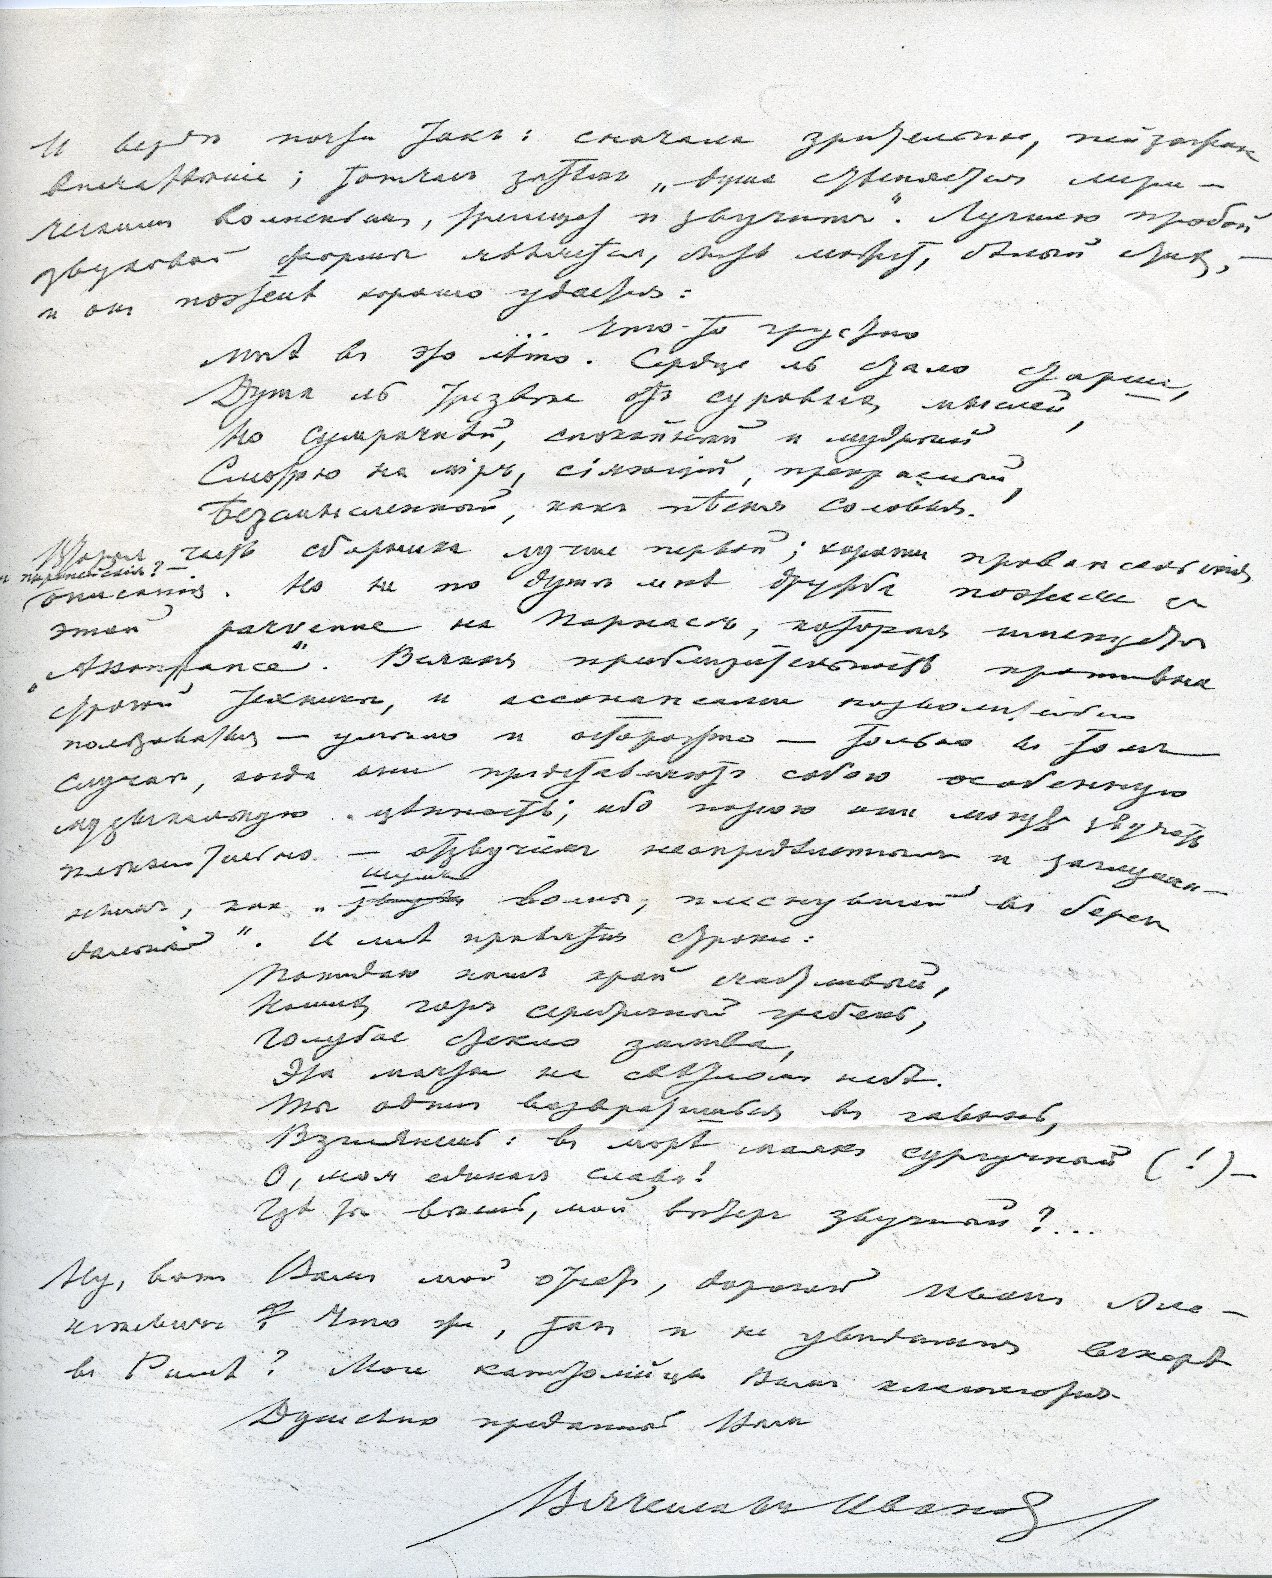 И вездѣ почти такъ: сначала зрительное, пейзажное
впечатлѣніе; тотчасъ затѣмъ „душа стѣсняется лири-
ческимъ волненьемъ, трепещетъ и звучитъ“. Лучшею пробой
звуковой формы является, быть можетъ, бѣлый стихъ, —
и онъ поэтомъ хорошо удается:
... Что-то грустно
Мнѣ въ это лѣто. Сердце ль стало старше,
Душа ль трезвѣе отъ суровыхъ мыслей,
Но сумрачный, спокойный и мудрый
Смотрю на міръ, сіяющій, прекрасный,
Безсмысленный, какъ пѣсня соловья.
Вторая часть сборника лучше первой; хороши провансальскія
и парижскія? —
описанія. Но не по душѣ мнѣ дружба поэзіи съ
этой parvenue на Парнасѣ, которая именуется
„Assonance“. Всякая приблизительность противна
строгой техникѣ, и ассонансами позволительно
пользоваться — умѣло и осторожно — только въ томъ
случаѣ, когда они представляютъ собою особенную
музыкальную цѣнность; ибо порою они могутъ звучать
плѣнительно — отзвучіемъ неопредѣленнымъ и заглушен-
шумъ
нымъ, какъ „звукъ волны, плеснувшей въ берегъ
дальный“. И мнѣ нравятся строки:
Покидаю нашъ край счастливый,
Нашихъ горъ серебряный гребень,
Голубое стекло залива,
Эти мачты на свѣтломъ небѣ.
Ты одинъ возвратишься въ гавань,
Взглянешь: въ морѣ маякъ сургучный (!) —
О, моя единая слава!
Гдѣ ты вѣешь, мой вѣтеръ звучный?...
Ну, вотъ Вамъ мой отчетъ, дорогой Иванъ Але-
ксѣевичъ. Что же, такъ и не увидимся вскорѣ
въ Римѣ? Мои Вамъ кланяются
Душевно преданный Вамъ
Вячеславъ Ивановъ